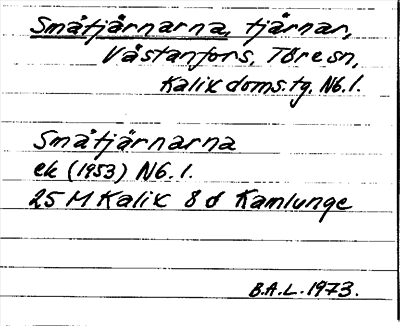 Småtjärnarna, tjärnar,
Västanfors, Töre sn,
Kalix doms.tg, Nb.l.
Småtjärnarna
ek (1953) Nb.l.
25 M Kalix 8 d Kamlunge
B.A.L. 1973.